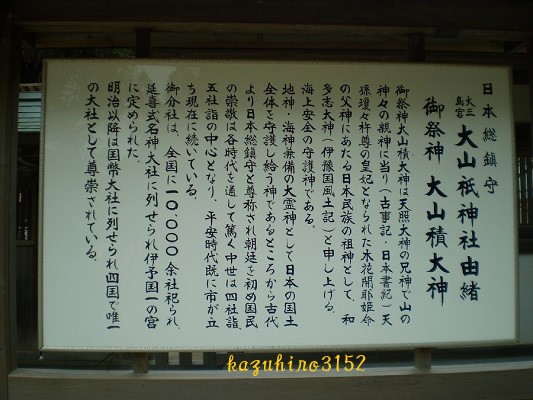 日本総鎮守
大三島宮 大山祇神社由緒
御祭神 大山積大神
御祭神大山積大神は天照大神の兄神で山の
神々の親神に当り(古事記・日本書紀)天
孫瓊々杵尊の皇妃となられた木花開耶姫命
の父神にあたる日本民族の祖神として、和
多志大神(伊豫国風土記)と申し上げる。
海上安全の守護神である。
地神・海神兼備の大霊神として日本の国土
全体を守護し給う神であるところから古代
より日本総鎮守と尊称され朝廷を初め国民
の崇敬は各時代を通して篤く中世は四社詣
五社詣の中心となり、平安時代既に市が立
ち現在に続いている。
御分社は、全国に一〇、〇〇〇余社祀られ、
延喜式名神大社に列せられ伊予国一の宮
に定められた。
明治以降は国幣大社に列せられ四国で唯一
の大社として尊崇されている。
kazuhiro3152